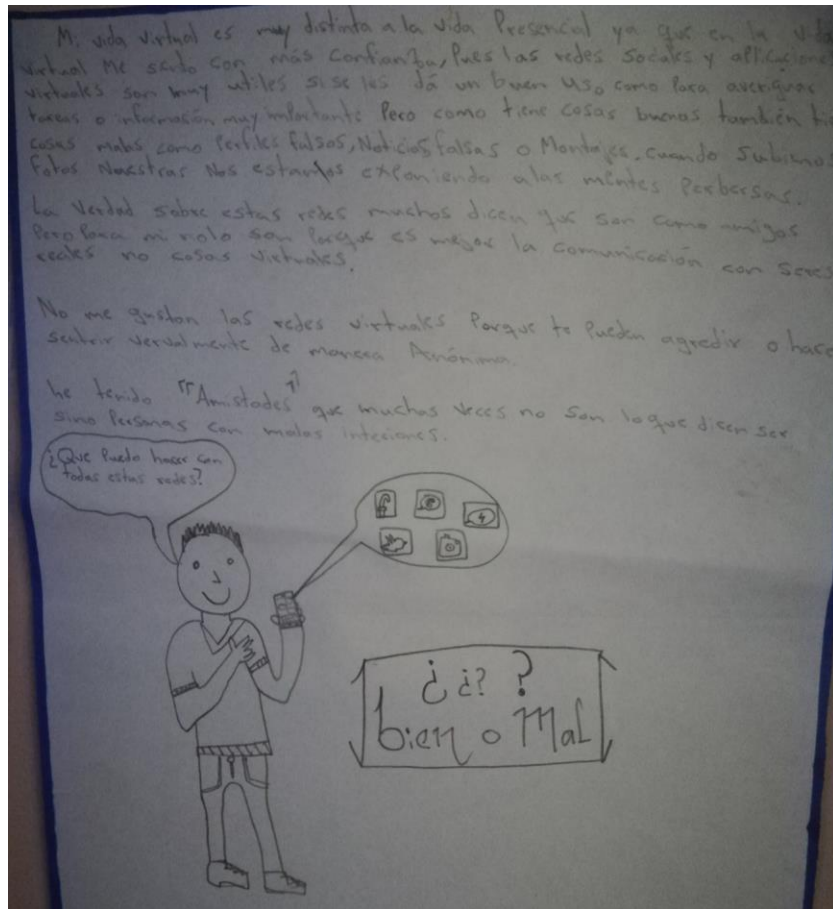 Mi vida virtual es muy distinta a la vida Presencial ya que en la vida
virtual me siento con más confianza, Pues las redes sociales y aplicaciones
virtuales son muy utiles si se les dá un buen uso como Para averiguar
tareas o información muy importante Pero como tiene cosas buenas también
cosas malas como Perfiles falsos, Noticias falsas o Montajes. cuando subimos
Fotos Nuestras Nos estamos exponiendo a las mentes Perbersas.
La Verdad sobre estas redes muchos dicen que son como amigos
Pero Para mi no lo son Porque es mejor la comunicación con seres
reales no cosas virtuales.
No me gustan las redes virtuales Porque te Pueden agredir o hacer
sentir vervalmente de manera Anónima.
he tenido "Amistades" que muchas veces no son lo que dicen ser
sino Personas con malas inteciones.
¿Que Puedo hacer con
todas estas redes?
¿ ¿? ?
bien o Mal